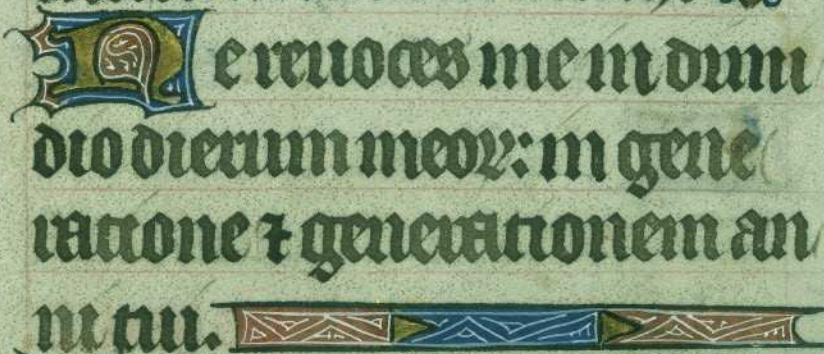 Ne reuoces me in dimi
dio dierum meoꝝ: in gene
ratione ⁊ generationem an
ni tui.